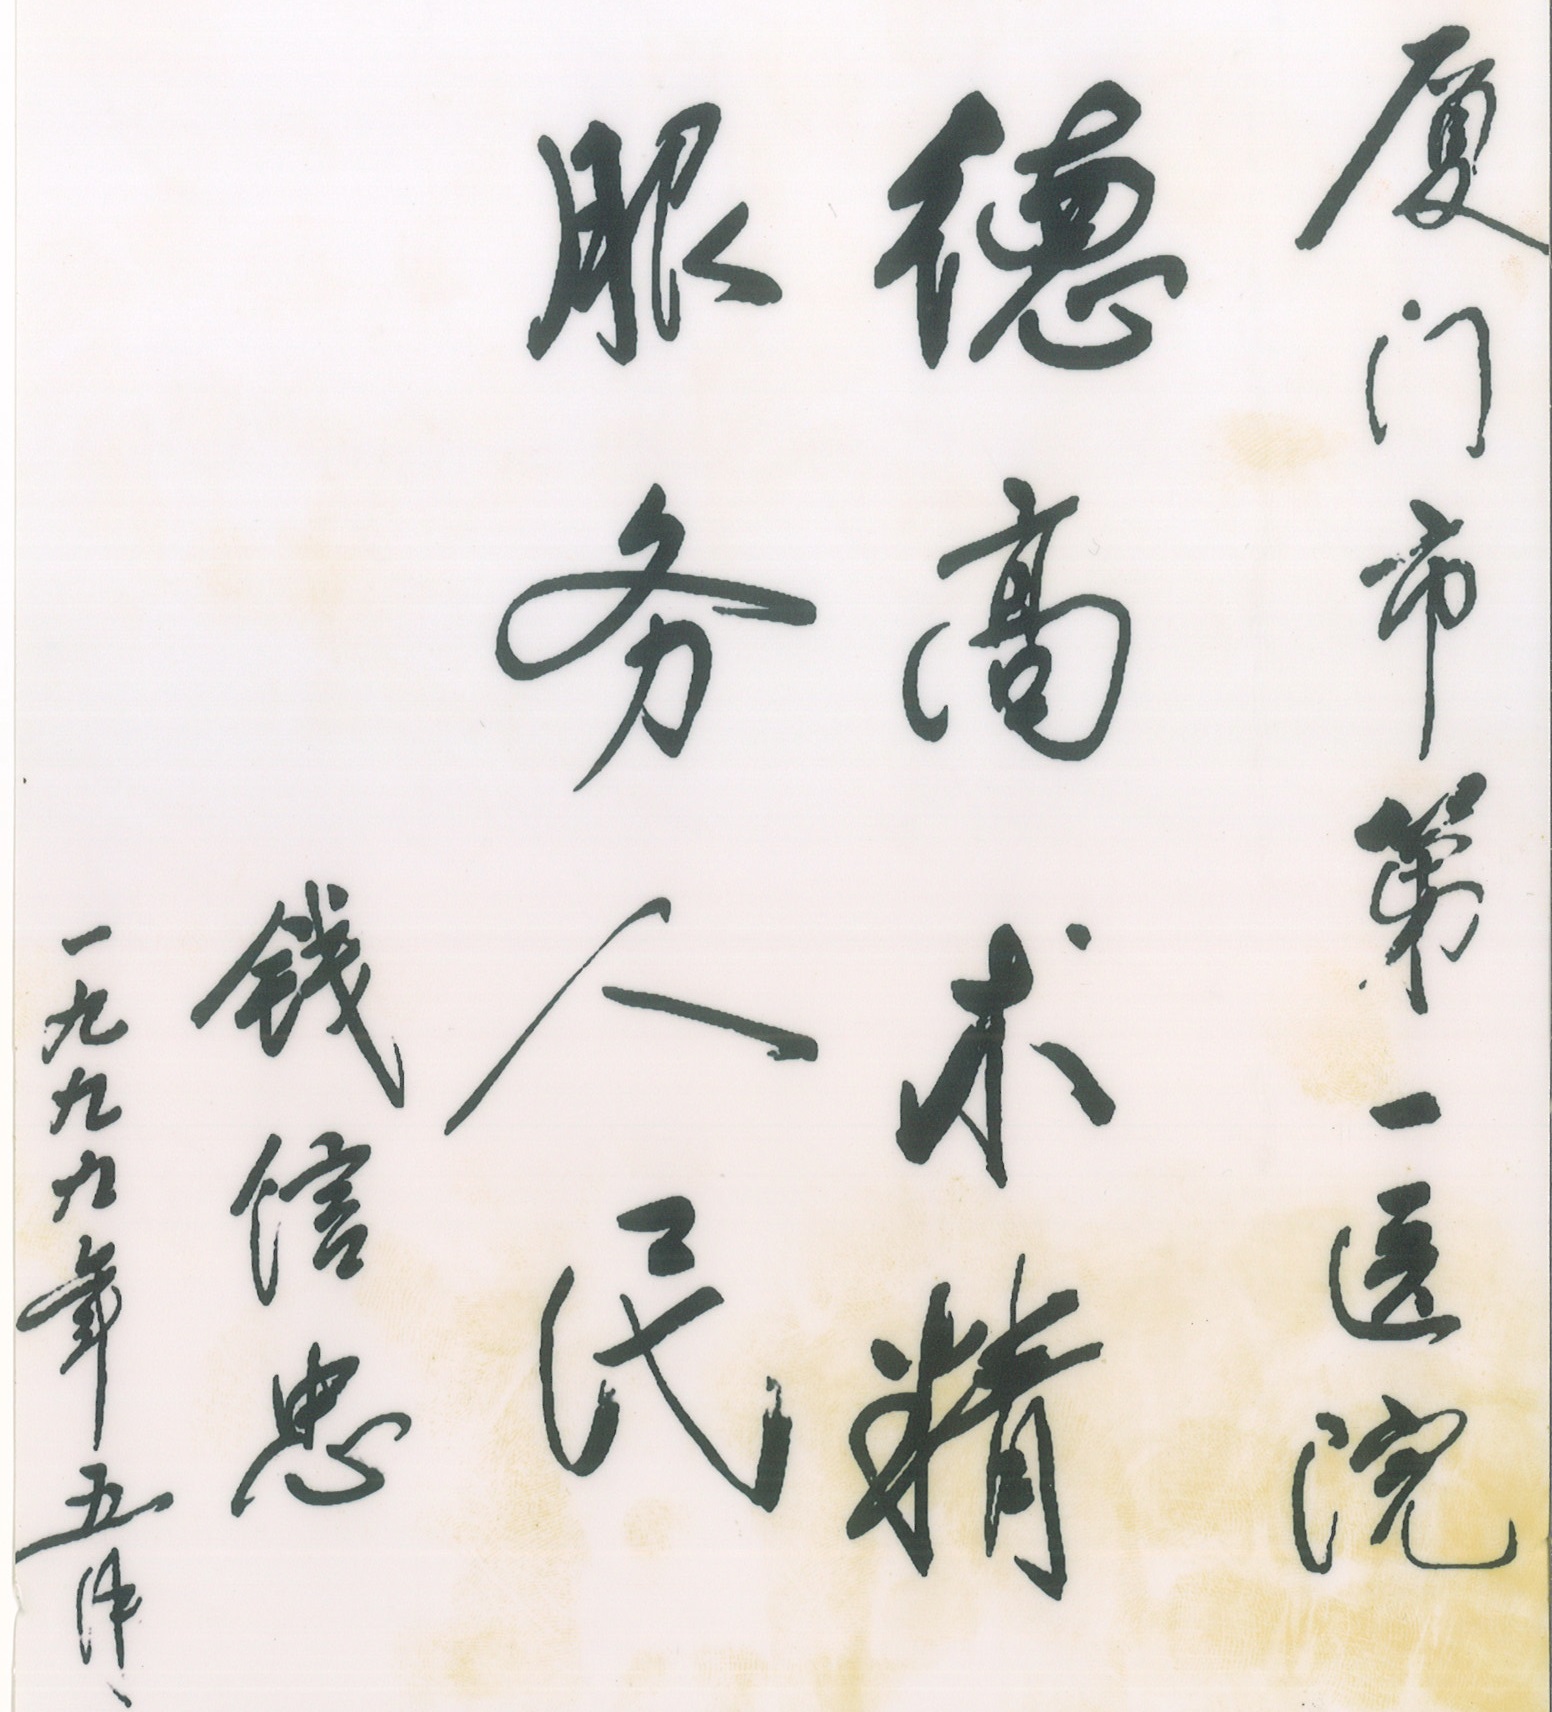 厦门市第一医院
德高术精
服务人民
钱信忠
一九九九年五月